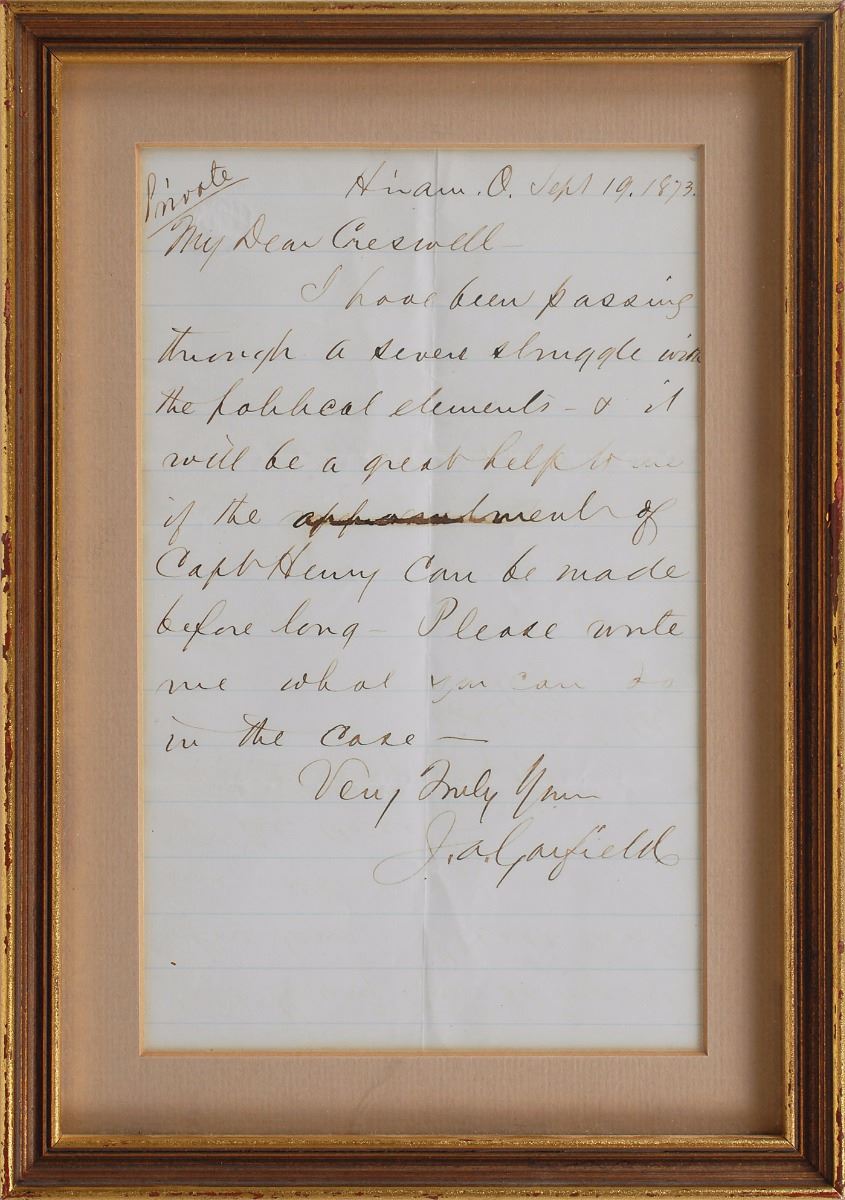 Private
Hiram. O. Sept 19. 1873.
My Dear Creswell—
I have been passing
through a severe struggle with
the political elements – & it
will be a great help to me
if the appointment of
Capt Henry can be made
before long – Please write
me what you can do
in the case —
Very Truly Yours
J. A. Garfield